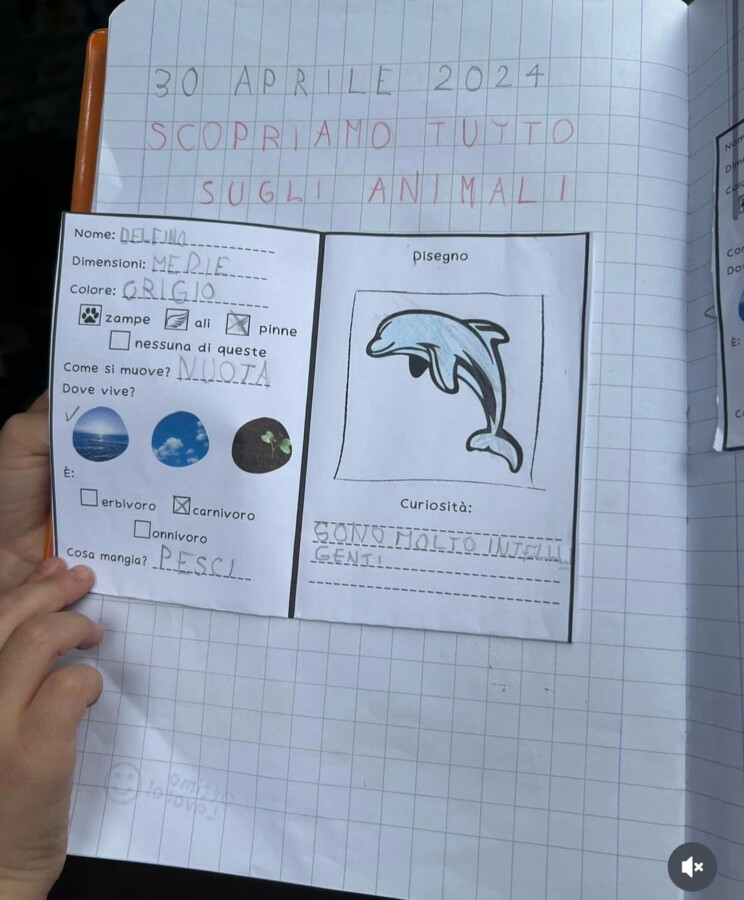 30 APRILE 2024
SCOPRIAMO TUTTO
SUGLI ANIMALI
Nome: DELFINO
Dimensioni: MEDIE
Colore: GRIGIO
zampe ali pinne
nessuna di queste
Come si muove? NUOTA
Dove vive?
È:
erbivoro carnivoro
onnivoro
Cosa mangia? PESCI
Disegno
Curiosità:
SONO MOLTO INTELLI
GENTI
Nom
Dim
Col
Co
Do
È:
C
Ottimo
lavoro!